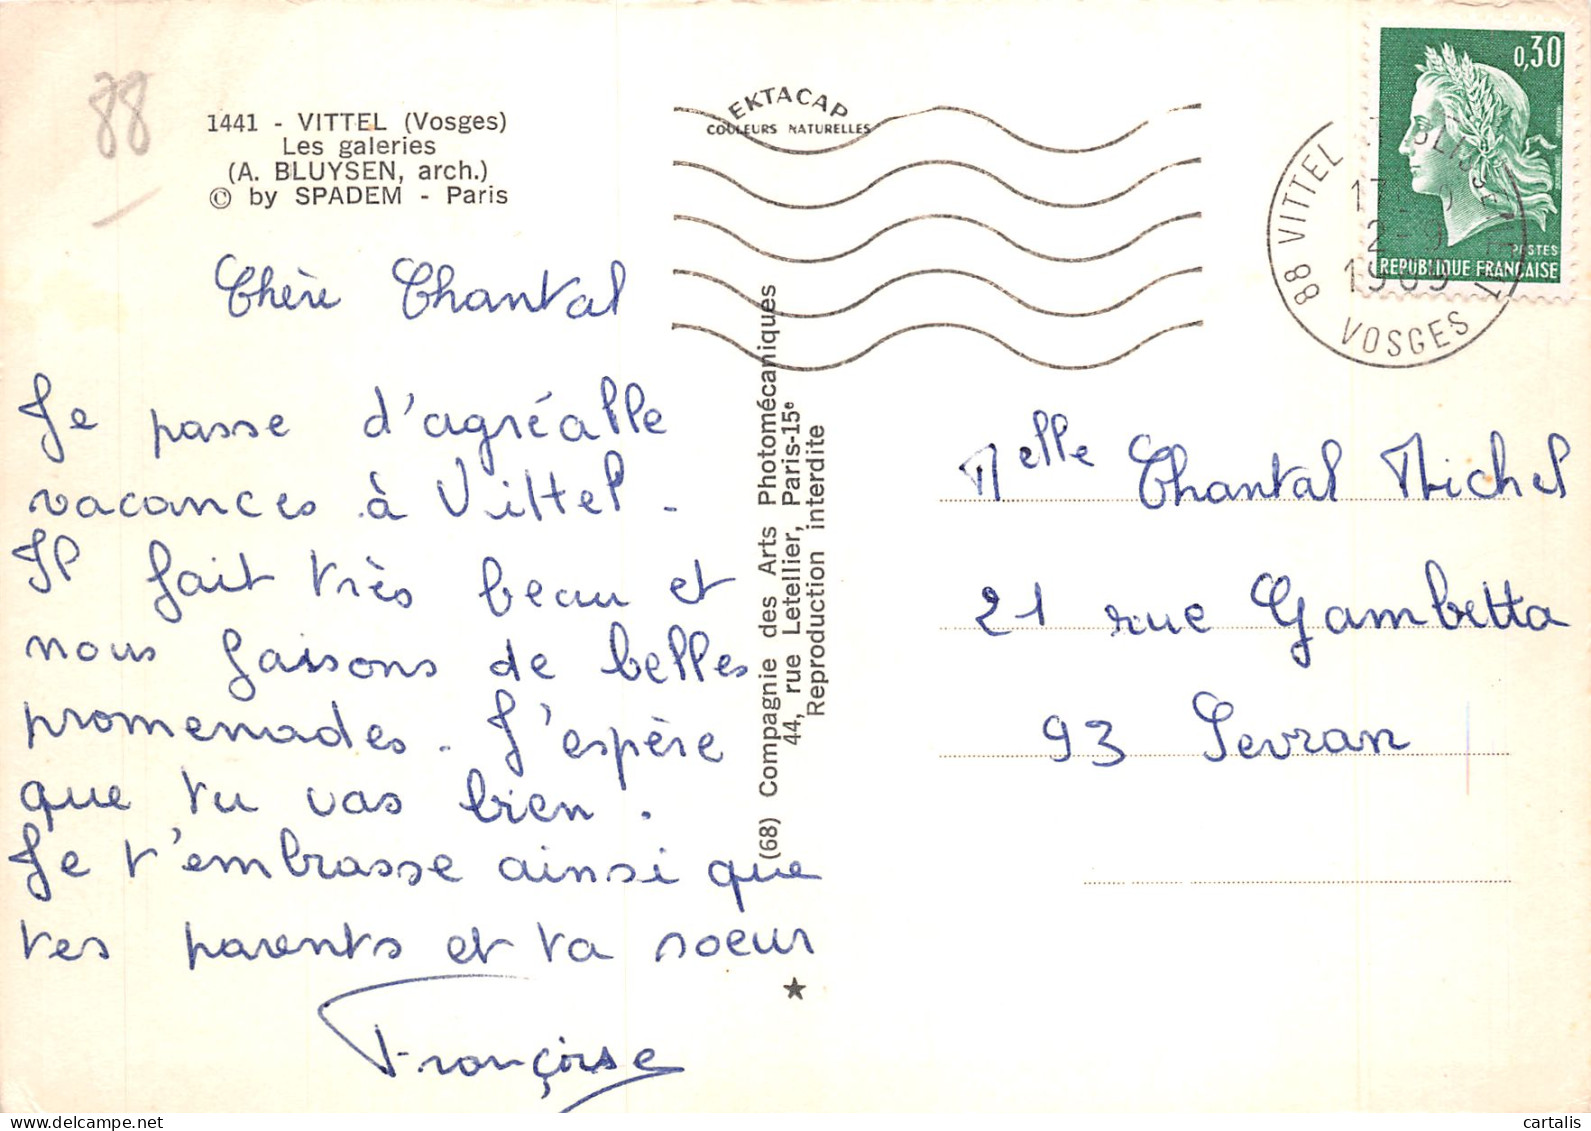 88
1441 - VITTEL (Vosges)
Les galeries
(A. BLUYSEN, arch.)
© by SPADEM - Paris
EKTACAP
COULEURS NATURELLES
0,30
POSTES
RÉPUBLIQUE FRANÇAISE
88 VITTEL
2-9
1969
VOSGES
Chère Chantal
Je passe d'agréable
vacances à Vittel.
Il fait très beau et
nous faisons de belles
promenades. J'espère
que tu vas bien.
Je t'embrasse ainsi que
tes parents et ta soeur
Françoise
(68) Compagnie des Arts Photomécaniques
44, rue Letellier, Paris-15e
Reproduction interdite
Melle Chantal Michel
21 rue Gambetta
93 Sevran
delcampe.net
cartalis